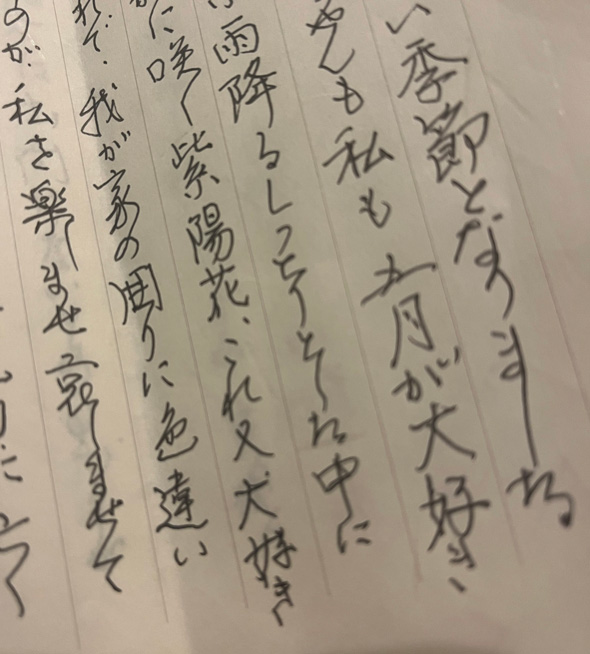 い季節となりました
も私も五月が大好き、
雨降るしっとりとした中に
に咲く紫陽花、これ又大好き
れで、我が家の囲りに色違い
のが私を楽しませ哀しませて